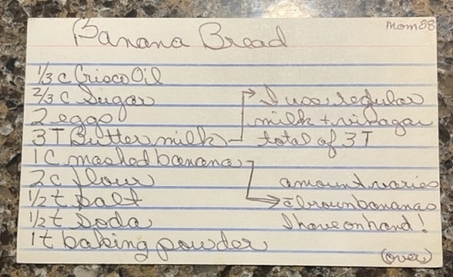 Mom 88
Banana Bread
1/3 c Crisco Oil
2/3 c Sugar
2 eggs
3 T Buttermilk
I use regular
milk + vinegar
total of 3 T
1 c mashed banana
2 c flour
1/2 t salt
1/2 t soda
1 t baking powder
amount varies
c̄ brown bananas
I have on hand!
(over)